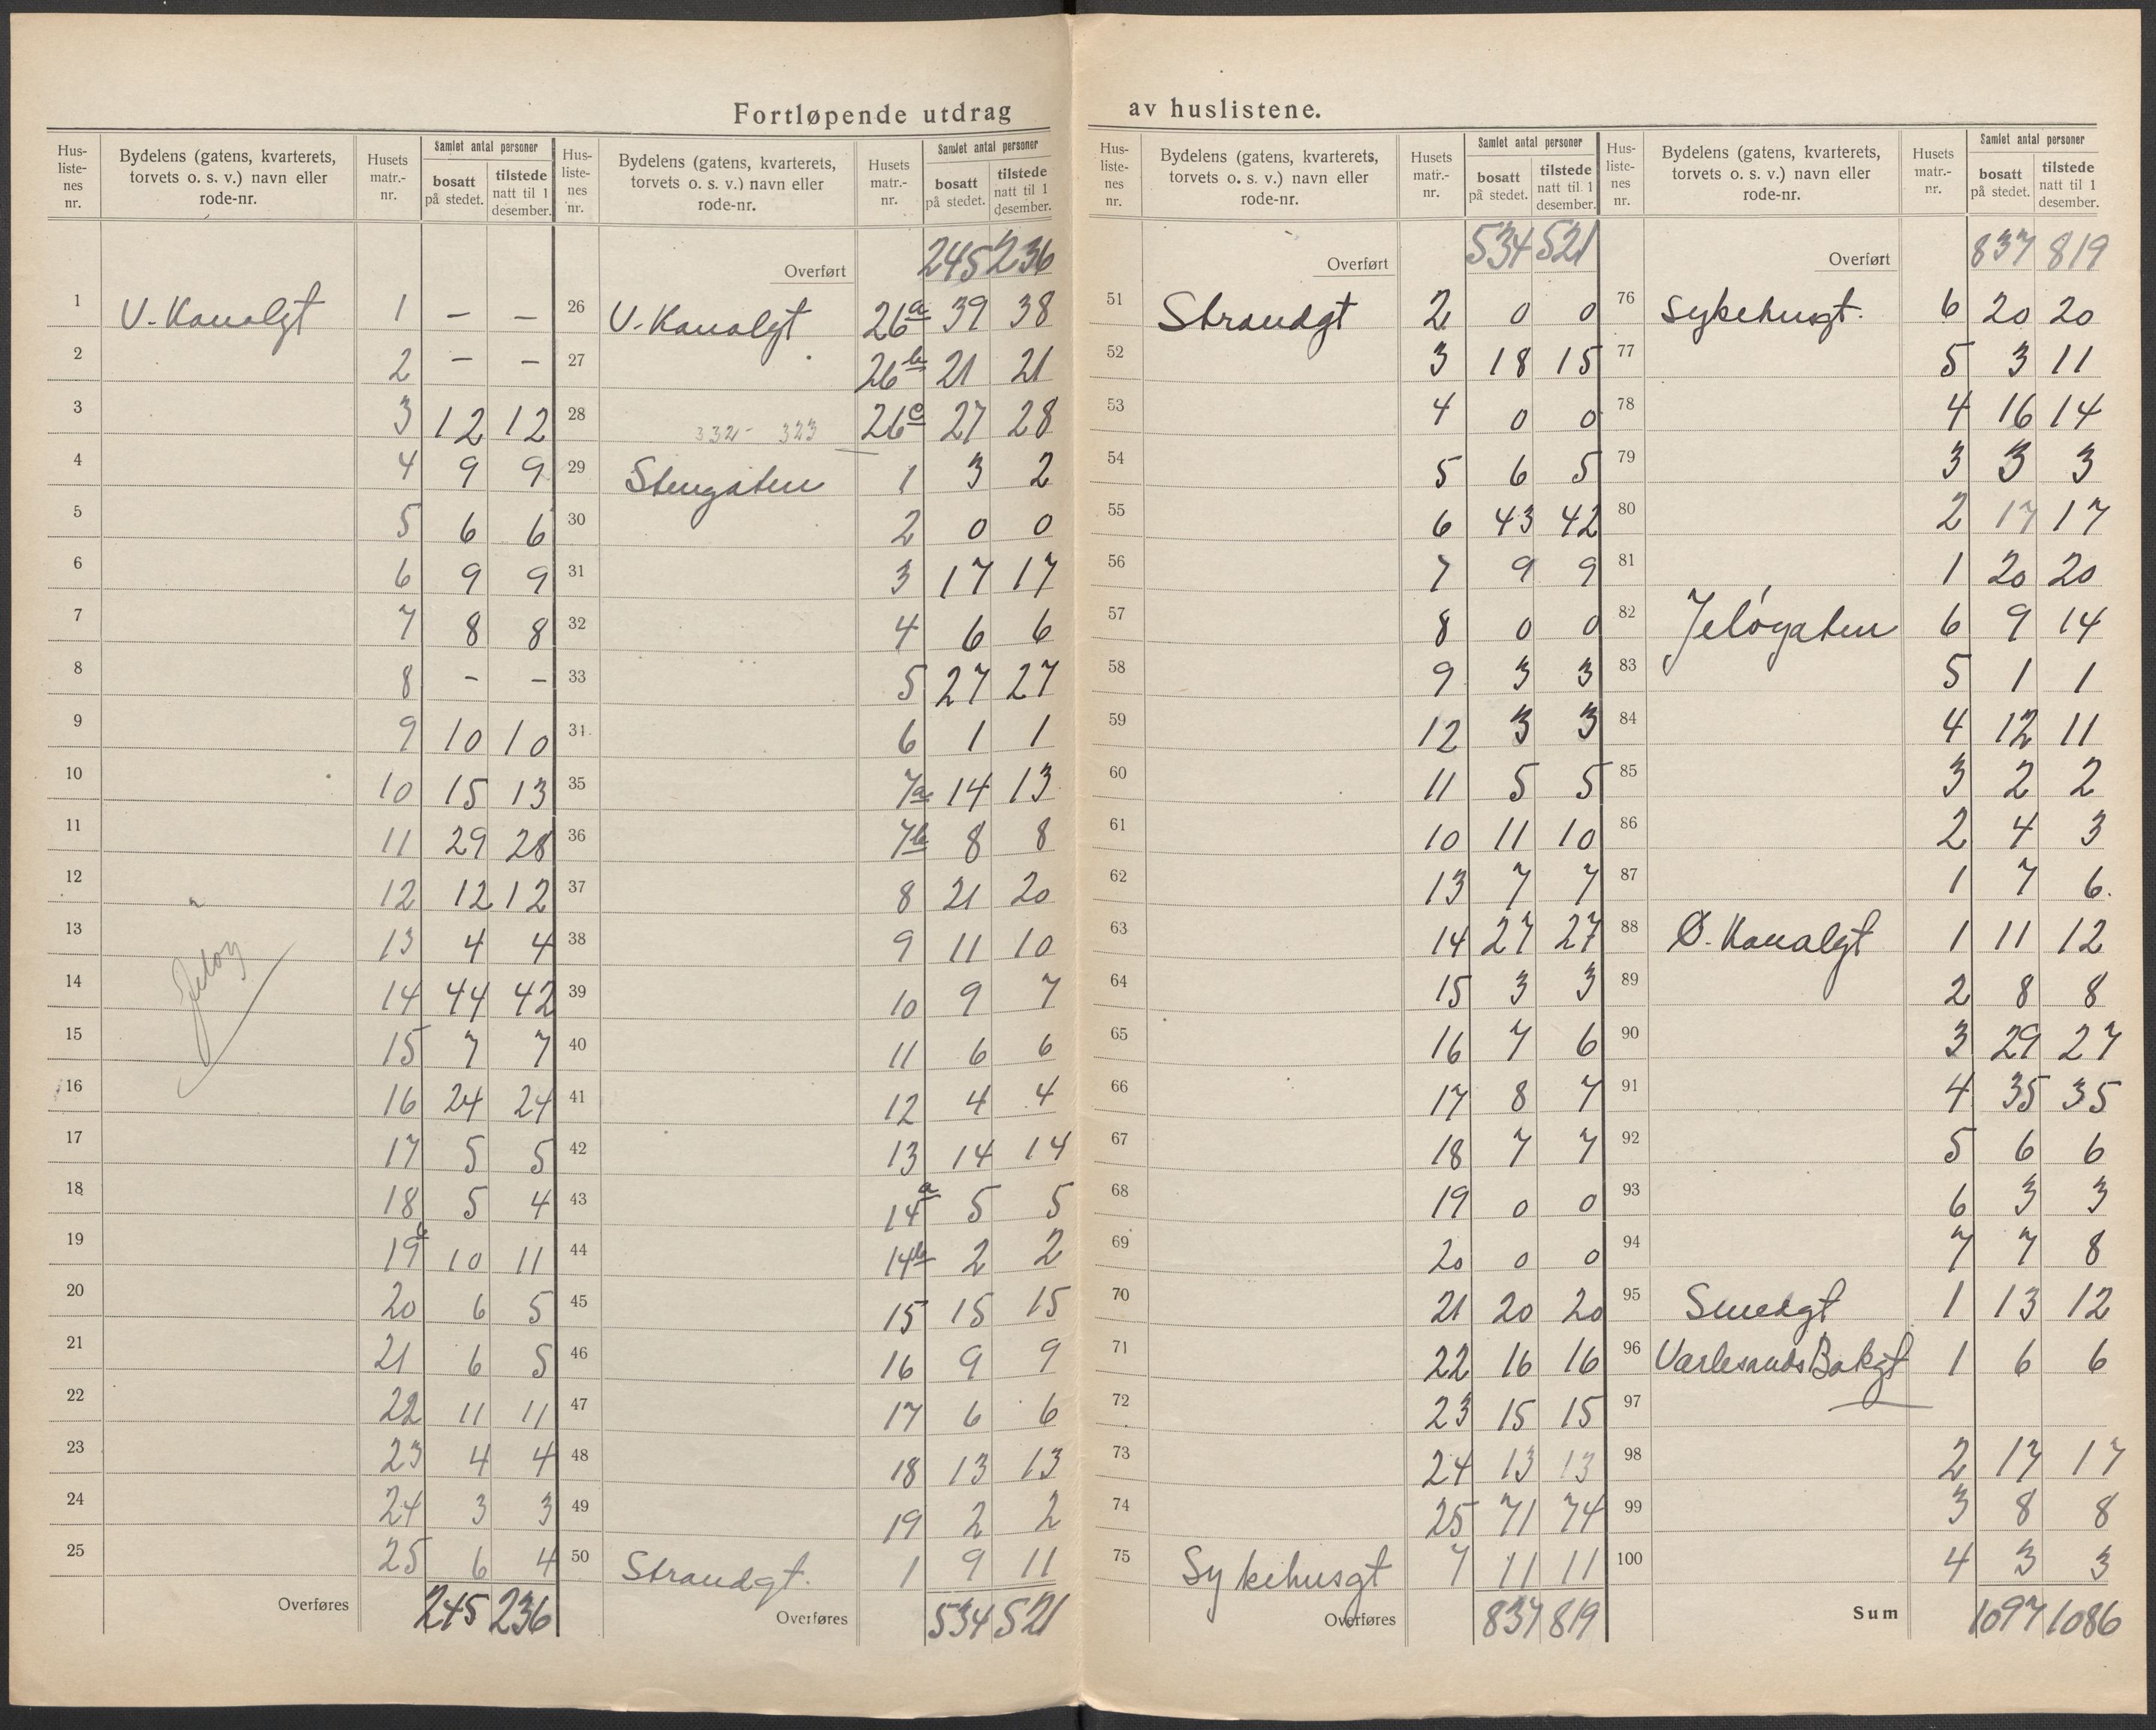 Fortløpende utdrag av huslistene.
Hus-listenes nr. | Bydelens (gatens, kvarterets, torvets o. s. v.) navn eller rode-nr. | Husets matr.-nr. | Samlet antal personer: bosatt på stedet. | tilstede natt til 1 desember.
1 V. Kanalgt 1 – –
2 2 – –
3 3 12 12
4 4 9 9
5 5 6 6
6 6 9 9
7 7 8 8
8 8 – –
9 9 10 10
10 10 15 13
11 11 29 28
12 " 12 12 12
13 13 4 4
Jeløy
14 14 44 42
15 15 7 7
16 16 24 24
17 17 5 5
18 18 5 4
19 19 10 11
20 20 6 5
21 21 6 5
22 22 11 11
23 23 4 4
24 24 3 3
25 25 6 4
Overføres 245 236
Hus-listenes nr. | Bydelens (gatens, kvarterets, torvets o. s. v.) navn eller rode-nr. | Husets matr.-nr. | Samlet antal personer: bosatt på stedet. | tilstede natt til 1 desember.
Overført 245 236
26 V. Kanalgt 26a 39 38
27 26b 21 21
28 332 - 323 26c 27 28
29 Stengaten 1 3 2
30 2 0 0
31 3 17 17
32 4 6 6
33 5 27 27
31. 6 1 1
35 7a 14 13
36 7b 8 8
37 8 21 20
38 9 11 10
39 10 9 7
40 11 6 6
41 12 4 4
42 13 14 14
43 14a 5 5
44 14b 2 2
45 15 15 15
46 16 9 9
47 17 6 6
48 18 13 13
49 19 2 2
50 Strandgt. 1 9 11
Overføres 534 521
Hus-listenes nr. | Bydelens (gatens, kvarterets, torvets o. s. v.) navn eller rode-nr. | Husets matr.-nr. | Samlet antal personer: bosatt på stedet. | tilstede natt til 1 desember.
Overført 534 521
51 Strandgt 2 0 0
52 3 18 15
53 4 0 0
54 5 6 5
55 6 43 42
56 7 9 9
57 8 0 0
58 9 3 3
59 12 3 3
60 11 5 5
61 10 11 10
62 13 7 7
63 14 27 27
64 15 3 3
65 16 7 6
66 17 8 7
67 18 7 7
68 19 0 0
69 20 0 0
70 21 20 20
71 22 16 16
72 23 15 15
73 24 13 13
74 25 71 74
75 Sykehusgt 7 11 11
Overføres 837 819
Hus-listenes nr. | Bydelens (gatens, kvarterets, torvets o. s. v.) navn eller rode-nr. | Husets matr.-nr. | Samlet antal personer: bosatt på stedet. | tilstede natt til 1 desember.
Overført 837 819
76 Sykehusgt. 6 20 20
77 5 3 11
78 4 16 14
79 3 3 3
80 2 17 17
81 1 20 20
82 Jeløgaten 6 9 14
83 5 1 1
84 4 12 11
85 3 2 2
86 2 4 3
87 1 7 6.
88 Ø. Kanalgt 1 11 12
89 2 8 8
90 3 29 27
91 4 35 35
92 5 6 6
93 6 3 3
94 7 7 8
95 Smedgt 1 13 12
96 Varlesands Bakgt 1 6 6
97
98 2 17 17
99 3 8 8
100 4 3 3
Sum 1097 1086